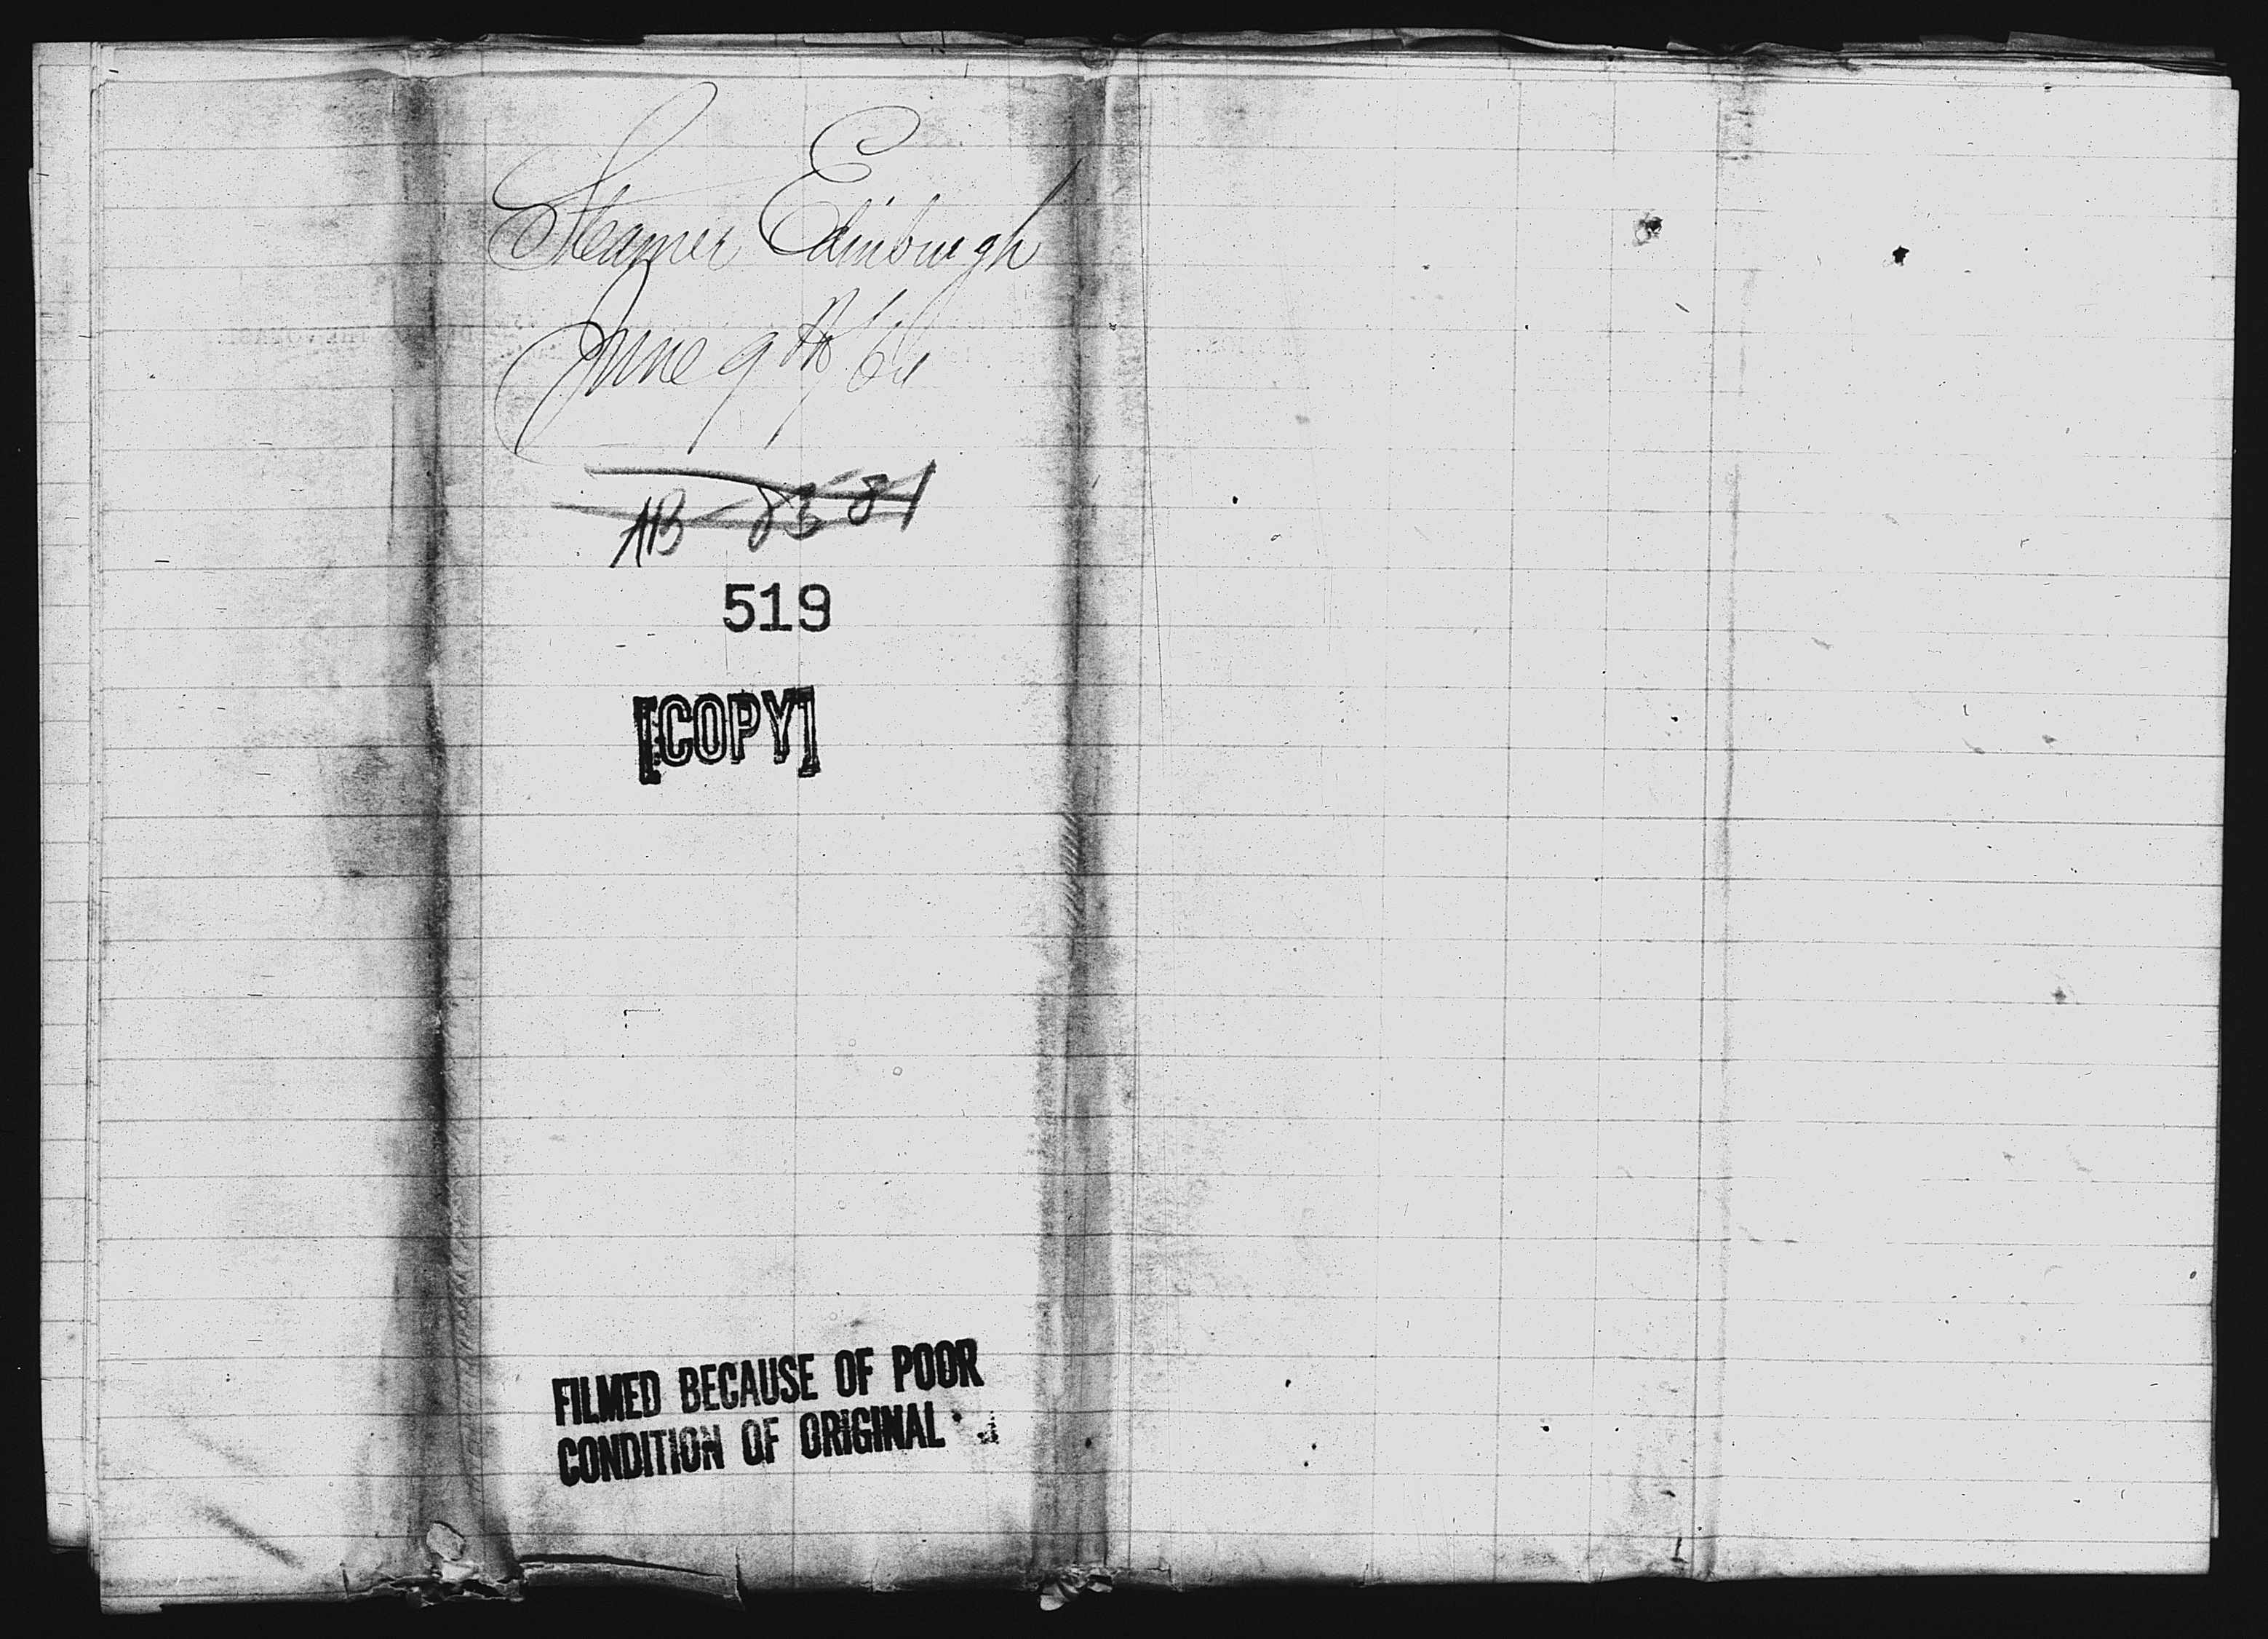 Steamer Edinburgh
June 9th / 66
AB - 83 81
519
[COPY]
FILMED BECAUSE OF POOR
CONDITION OF ORIGINAL